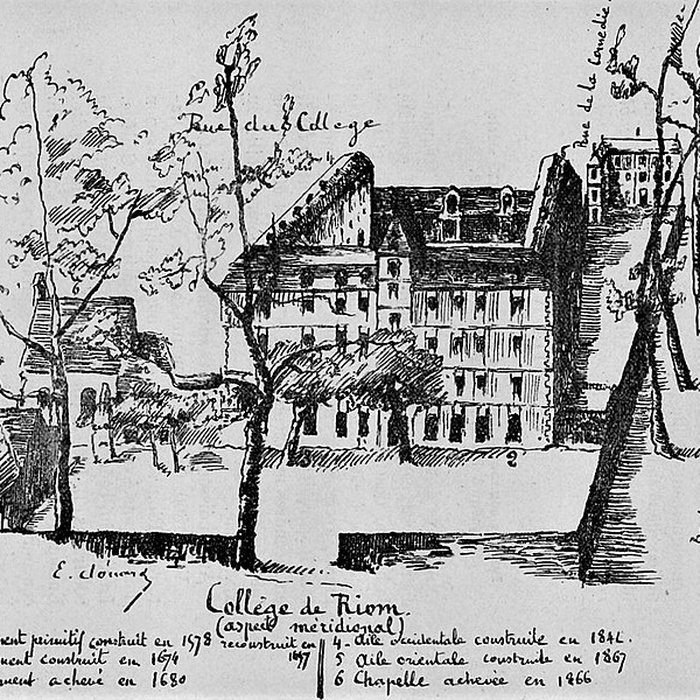 Rue de la Comédie
Rue du College
3
2
E. Edouard
Collége de Riom.
(aspect méridional)
ment primitif construit en 1578 reconstruit en
ment construit en 1674
ment achevé en 1680
4 Aile occidentale construite en
5 Aile orientale construite en 1867
6 Chapelle achevée en 1866